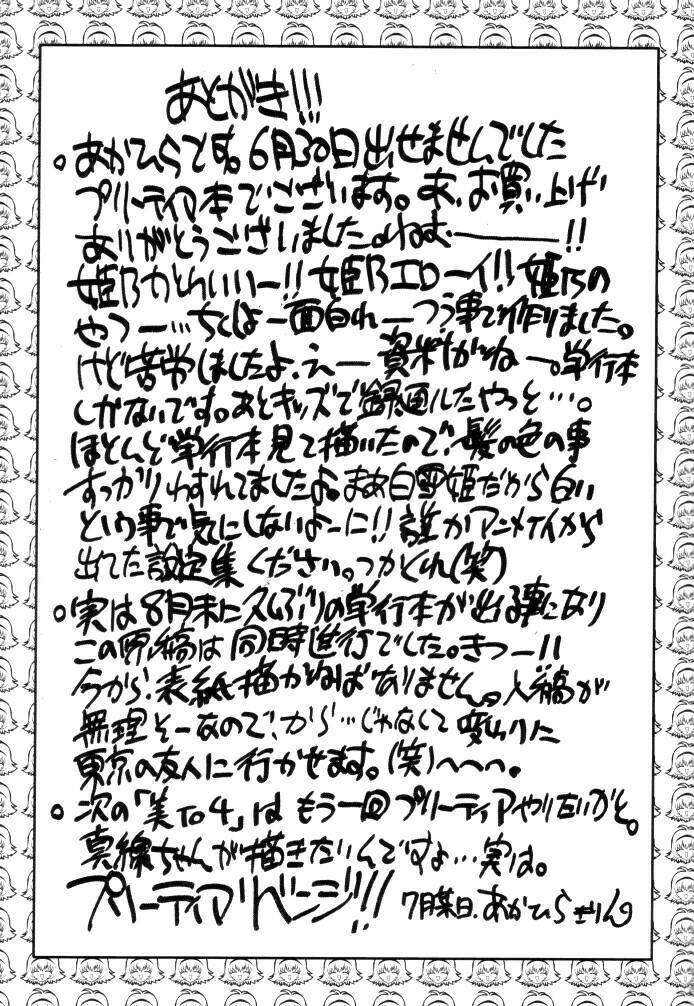 あとがき!!!
。あかひらです。6月30日出せませんでした
プリーティア本でございます。あ、お買い上げ
ありがとうございました。よねむーーー!!
姫乃かわいいー!!姫乃エローイ!!姫乃の
やつー…ちくしょー面白れーっつう事で作りました。
けど苦労しましたよ、えー資料がねー。単行本
しかないです。あとキッズで録画したやつと…。
ほとんど単行本見て描いたので、髪の色の事
すっかりわすれてましたよ。まあ白雪姫だから白い
という事で気にしないよーに!!誰かアニメイトから
出てた設定集ください。つかくれ(笑)
。実は8月末に久しぶりの単行本が出る事になり
この原稿は同時進行でした。きつー!!
今から、表紙描かねばなりません。入稿が
無理そーなので、から…じゃなくて変わりに
東京の友人に行かせます。(笑)へへへ。
。次の「美To4」はもう一回プリーティアやりたいかと。
真綾ちゃんが描きたいんですよ…実は。
プリーティアリベンジ!! 7月某日、あかひらきりん